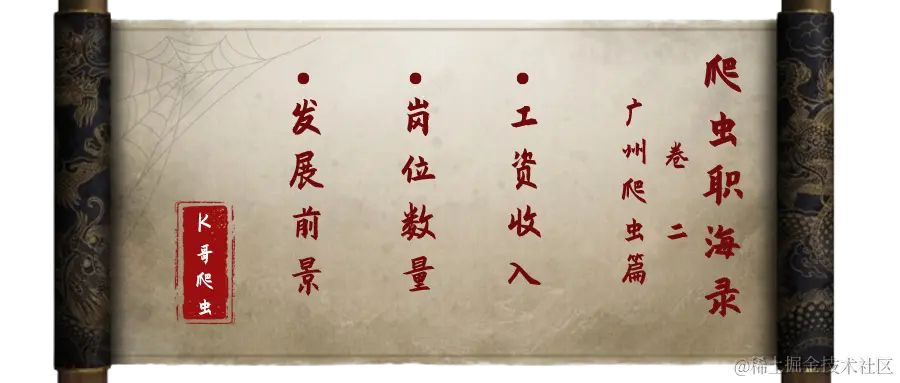 爬虫职海录
卷二
广州爬虫篇
• 工资收入
• 岗位数量
• 发展前景
K哥爬虫
@稀土掘金技术社区